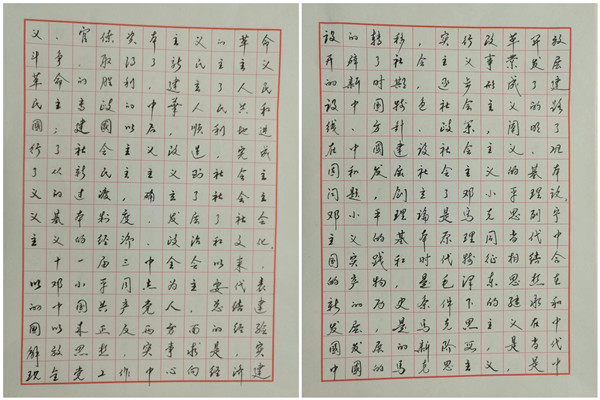 义、官僚资本主义的革命
斗争，取得了新民主主义
革命的胜利，建立了人民
民主专政的中華人民共和
國；建國以后，顺利地进
行了社会主义改造，完成
了从新民主主义到社会主
义的过渡，确立了社会主
义基本制度，发展了社会
主义的经济、政治和文化。
十一届三中全会以来，
以邓小平同志为主要代表
的中国共产党人，总结建
國以来正反两方面的经验
解放思想，实事求是，实
现全党工作中心向经济建
设的转移，实行改革开放
开辟了社会主义事业发展
的新时期，逐步形成了建
设中国特色社会主义的路
线、方针、政策，阐明了
在中國建设社会主义、巩
固和发展社会主义的基本
问题，创立了邓小平理论。
邓小平理论是马克思列宁
主义的基本原理同当代中
国实践和时代特征相结合
的产物，是毛泽东思想在
新的历史条件下的继承和
发展，是马克思主义在中
国发展的新阶段，是当代
中國的马克思主义，是中